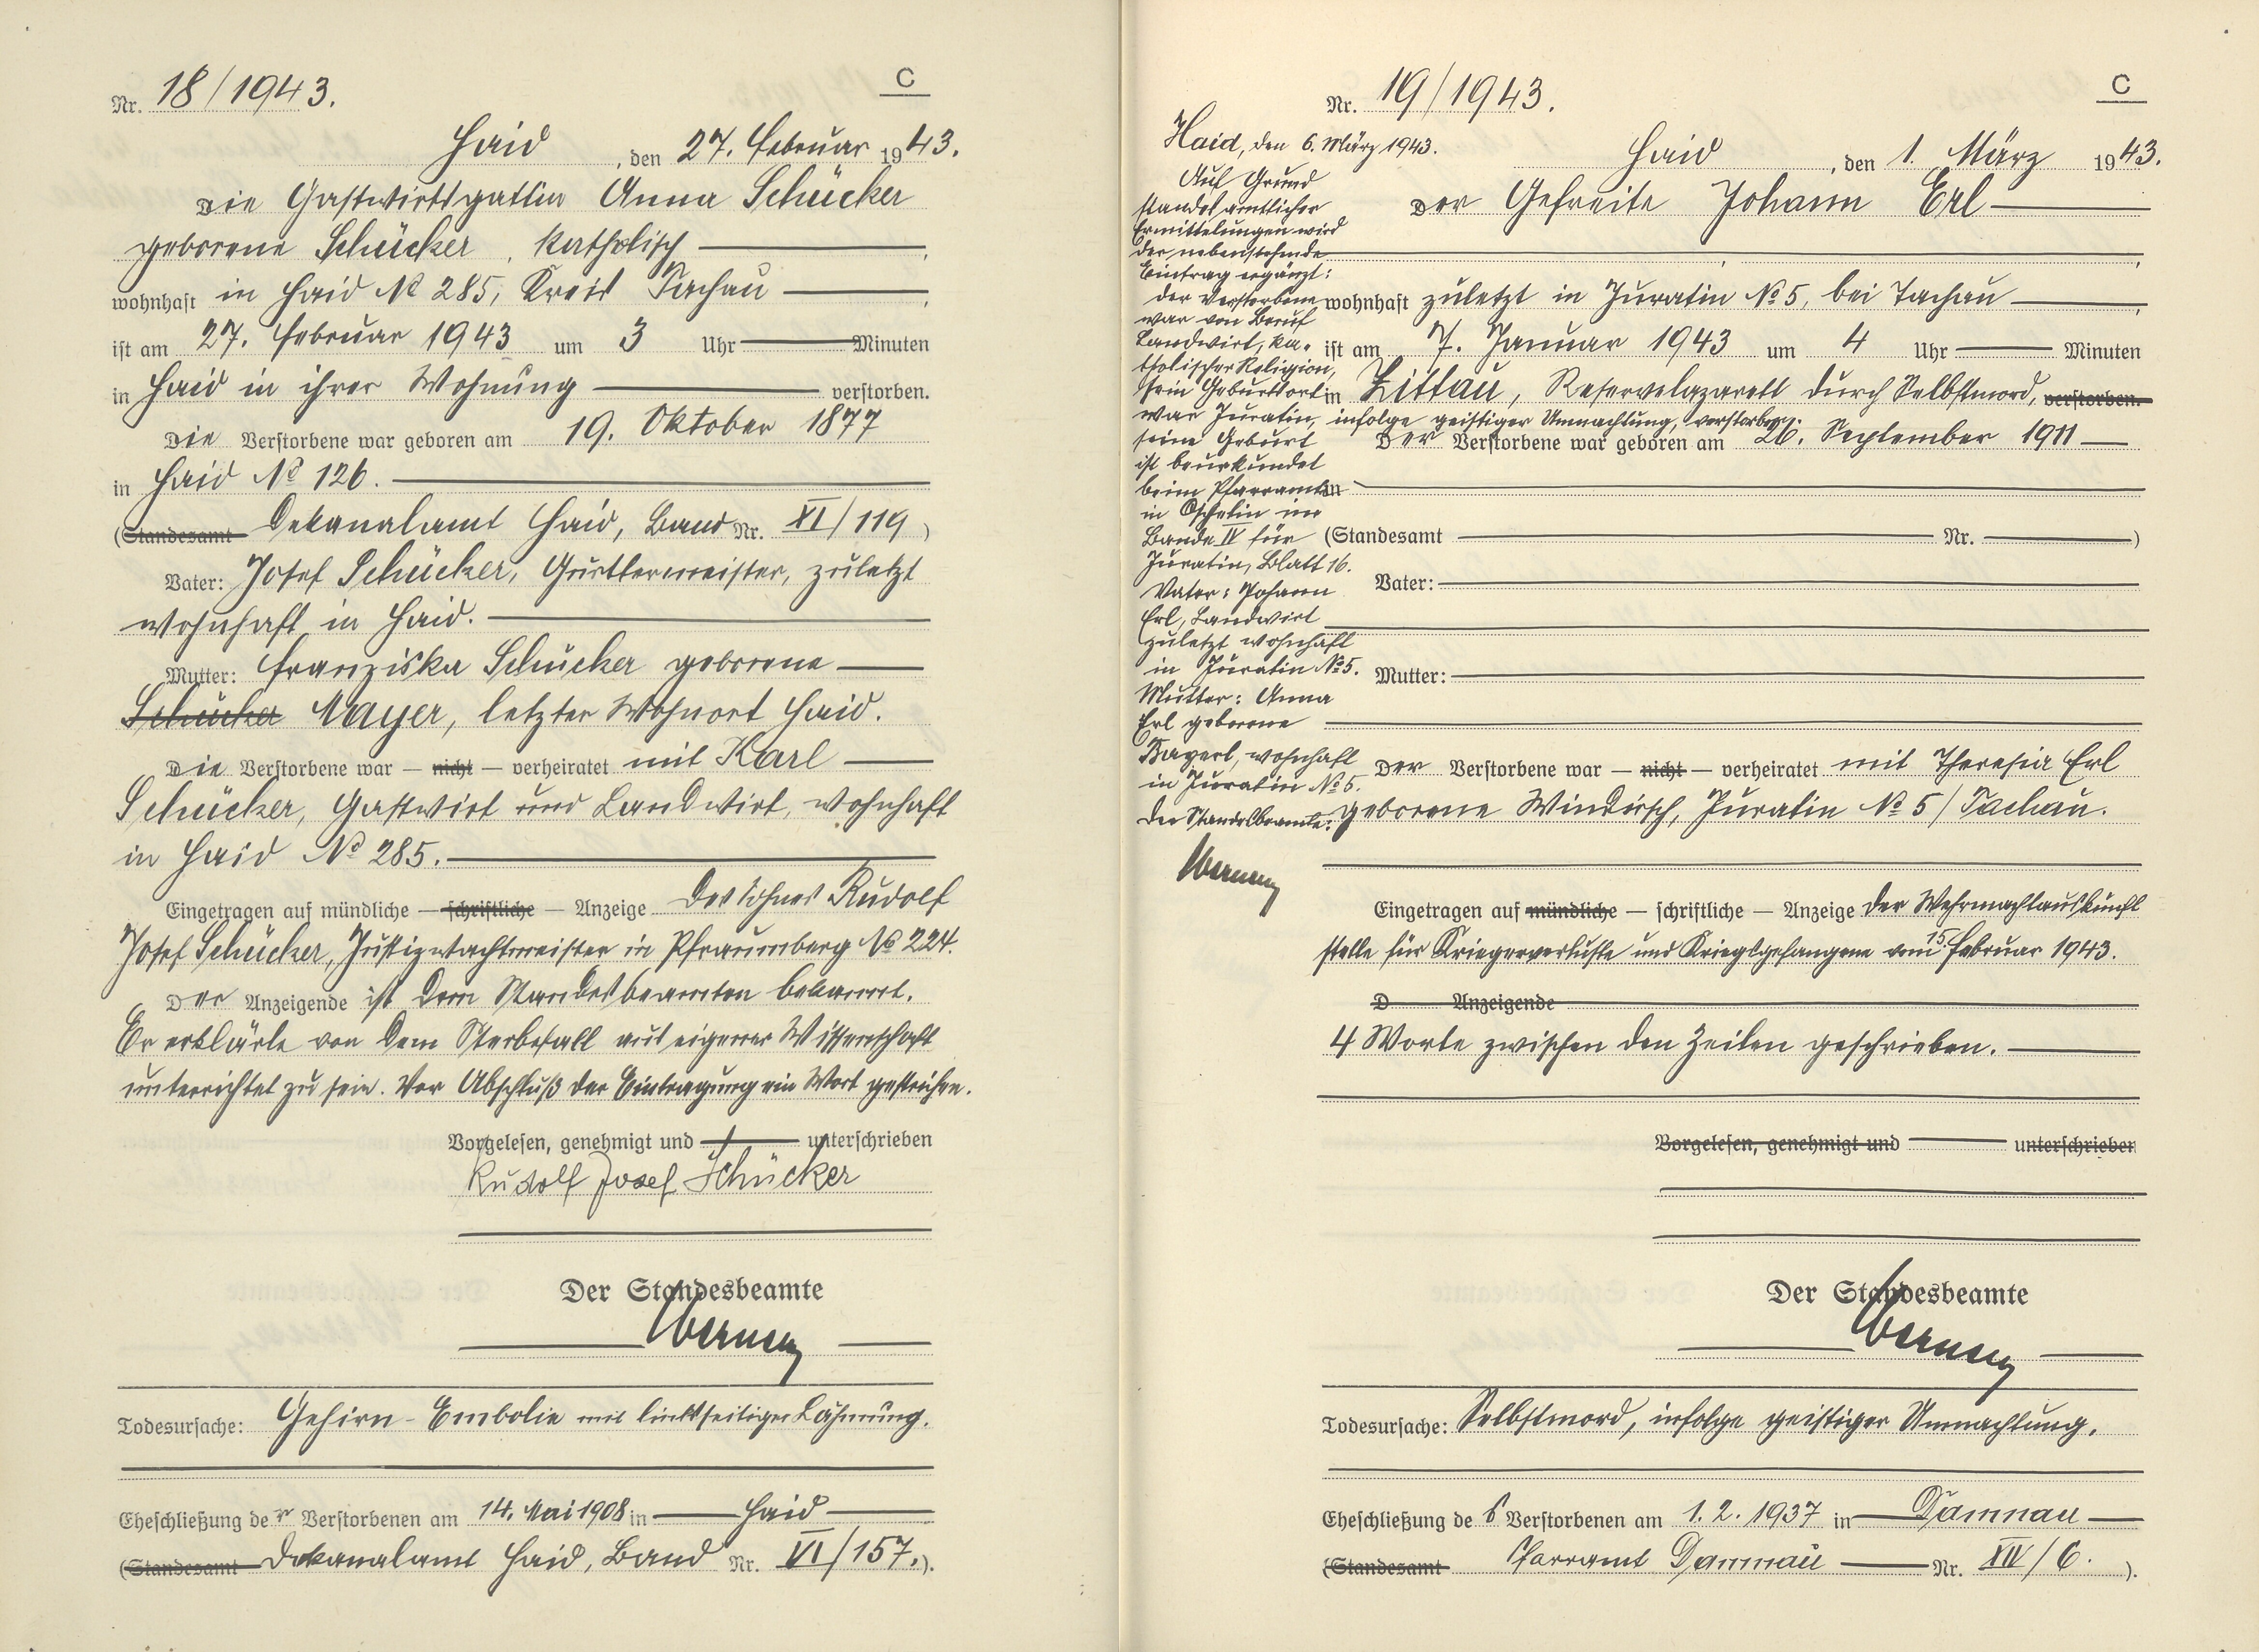 C
Nr. 18/1943.
Haid, den 27. Februar 1943.
Die Gastwirtsgattin Anna Schücker
geborene Schücker, katholisch
wohnhaft in Haid № 285, Kreis Tachau
ist am 27. Februar 1943 um 3 Uhr Minuten
in Haid in ihrer Wohnung verstorben.
Die Verstorbene war geboren am 19. Oktober 1877
in Haid № 126.
(Standesamt Dekanalamt Haid, Band Nr. XI/119)
Vater: Josef Schücker, Gürtlermeister, zuletzt
wohnhaft in Haid.
Mutter: Franziska Schücker geborene
Schücker Mayer, letzter Wohnort Haid.
Die Verstorbene war — nicht — verheiratet mit Karl
Schücker, Gastwirt und Landwirt, wohnhaft
in Haid № 285.
Eingetragen auf mündliche — schriftliche — Anzeige des Sohnes Rudolf
Josef Schücker, Justizwachtmeister in Pfraumberg № 224.
Der Anzeigende ist dem Standesbeamten bekannt.
Er erklärte von dem Sterbefall aus eigener Wissenschaft
unterrichtet zu sein. Vor Abschluß der Eintragung ein Wort gestrichen.
Vorgelesen, genehmigt und unterschrieben
Rudolf Josef Schücker
Der Standesbeamte
Todesursache: Gehirn-Embolie mit linksseitiger Lähmung.
Eheschließung der Verstorbenen am 14. Mai 1908 in Haid
(Standesamt Dekanalamt Haid, Band Nr. VI/157.).
C
Nr. 19/1943.
Haid, den 1. März 1943.
Der Gefreite Johann Erl
wohnhaft zuletzt in Juratin № 5, bei Tachau
ist am 7. Januar 1943 um 4 Uhr Minuten
in Zittau, Reservelazarett durch Selbstmord, verstorben.
infolge geistiger Umnachtung, verstorben.
Der Verstorbene war geboren am 26. September 1911
in
(Standesamt Nr. )
Vater:
Mutter:
Der Verstorbene war — nicht — verheiratet mit Theresia Erl
geborene Windirsch, Juratin № 5/Tachau.
Eingetragen auf mündliche — schriftliche — Anzeige der Wehrmachtauskunft
stelle für Kriegerverluste und Kriegsgefangene vom 15. Februar 1943.
D Anzeigende
4 Worte zwischen den Zeilen geschrieben.
Vorgelesen, genehmigt und unterschrieben
Der Standesbeamte
Todesursache: Selbstmord, infolge geistiger Umnachtung.
Eheschließung des Verstorbenen am 1.2.1937 in Damnau
(Standesamt Pfarramt Damnau Nr. XIV/6. ).
Haid, den 6. März 1943.
Auf Grund
standesamtlicher
Ermittelungen wird
der nebenstehende
Eintrag ergänzt:
der Verstorbene
war von Beruf
Landwirt, ka-
tholischer Religion,
sein Geburtsort
war Juratin,
seine Geburt
ist beurkundet
beim Pfarramte
in Oschelin im
Bande IV für
Juratin, Blatt 16.
Vater: Johann
Erl, Landwirt
zuletzt wohnhaft
in Juratin № 5.
Mutter: Anna
Erl geborene
Bayerl, wohnhaft
in Juratin № 5.
Der Standesbeamte: